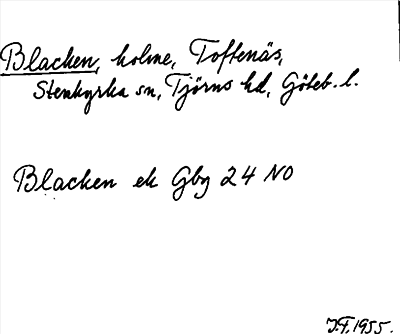 Blacken, holme, Toftenäs,
Stenkyrka sn, Tjörns hd, Göteb. l.
Blacken ek Gbg 24 NO
J.F. 1955.